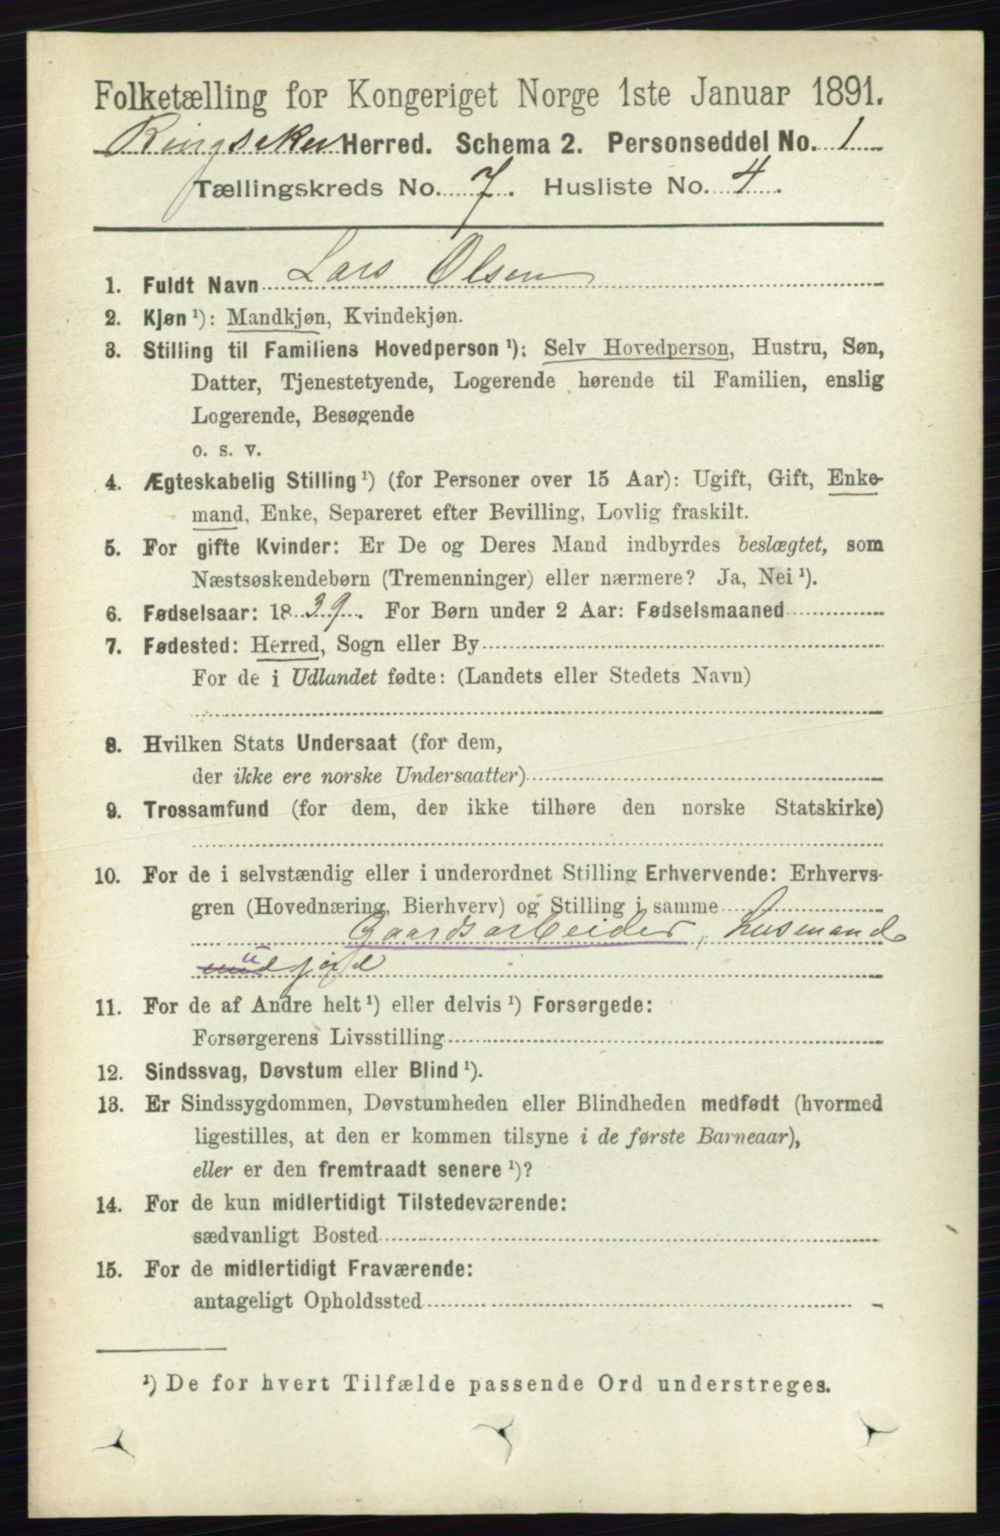 Folketælling for Kongeriget Norge 1ste Januar 1891.
Ringsaker Herred. Schema 2. Personseddel No. 1
Tællingskreds No. 7. Husliste No. 4.
1. Fuldt Navn Lars Olsen
2. Kjøn ¹): Mandkjøn, Kvindekjøn.
3. Stilling til Familiens Hovedperson ¹): Selv Hovedperson, Hustru, Søn,
Datter, Tjenestetyende, Logerende hørende til Familien, enslig
Logerende, Besøgende
o. s. v.
4. Ægteskabelig Stilling ¹) (for Personer over 15 Aar): Ugift, Gift, Enke-
mand, Enke, Separeret efter Bevilling, Lovlig fraskilt.
5. For gifte Kvinder: Er De og Deres Mand indbyrdes beslægtet, som
Næstsøskendebørn (Tremenninger) eller nærmere? Ja, Nei ¹).
6. Fødselsaar: 1839. For Børn under 2 Aar: Fødselsmaaned
7. Fødested: Herred, Sogn eller By
For de i Udlandet fødte: (Landets eller Stedets Navn)
8. Hvilken Stats Undersaat (for dem,
der ikke ere norske Undersaatter)
9. Trossamfund (for dem, der ikke tilhøre den norske Statskirke)
10. For de i selvstændig eller i underordnet Stilling Erhvervende: Erhvervs-
gren (Hovednæring, Bierhverv) og Stilling i samme
Gaardsarbeider, Husmand
u jord
11. For de af Andre helt ¹) eller delvis ¹) Forsørgede:
Forsørgerens Livsstilling
12. Sindssvag, Døvstum eller Blind ¹).
13. Er Sindssygdommen, Døvstumheden eller Blindheden medfødt (hvormed
ligestilles, at den er kommen tilsyne i de første Barneaar),
eller er den fremtraadt senere ¹)?
14. For de kun midlertidigt Tilstedeværende:
sædvanligt Bosted
15. For de midlertidigt Fraværende:
antageligt Opholdssted
¹) De for hvert Tilfælde passende Ord understreges.